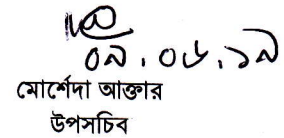 ০৯.০৬.১৯
মোর্শেদা আক্তার
উপসচিব